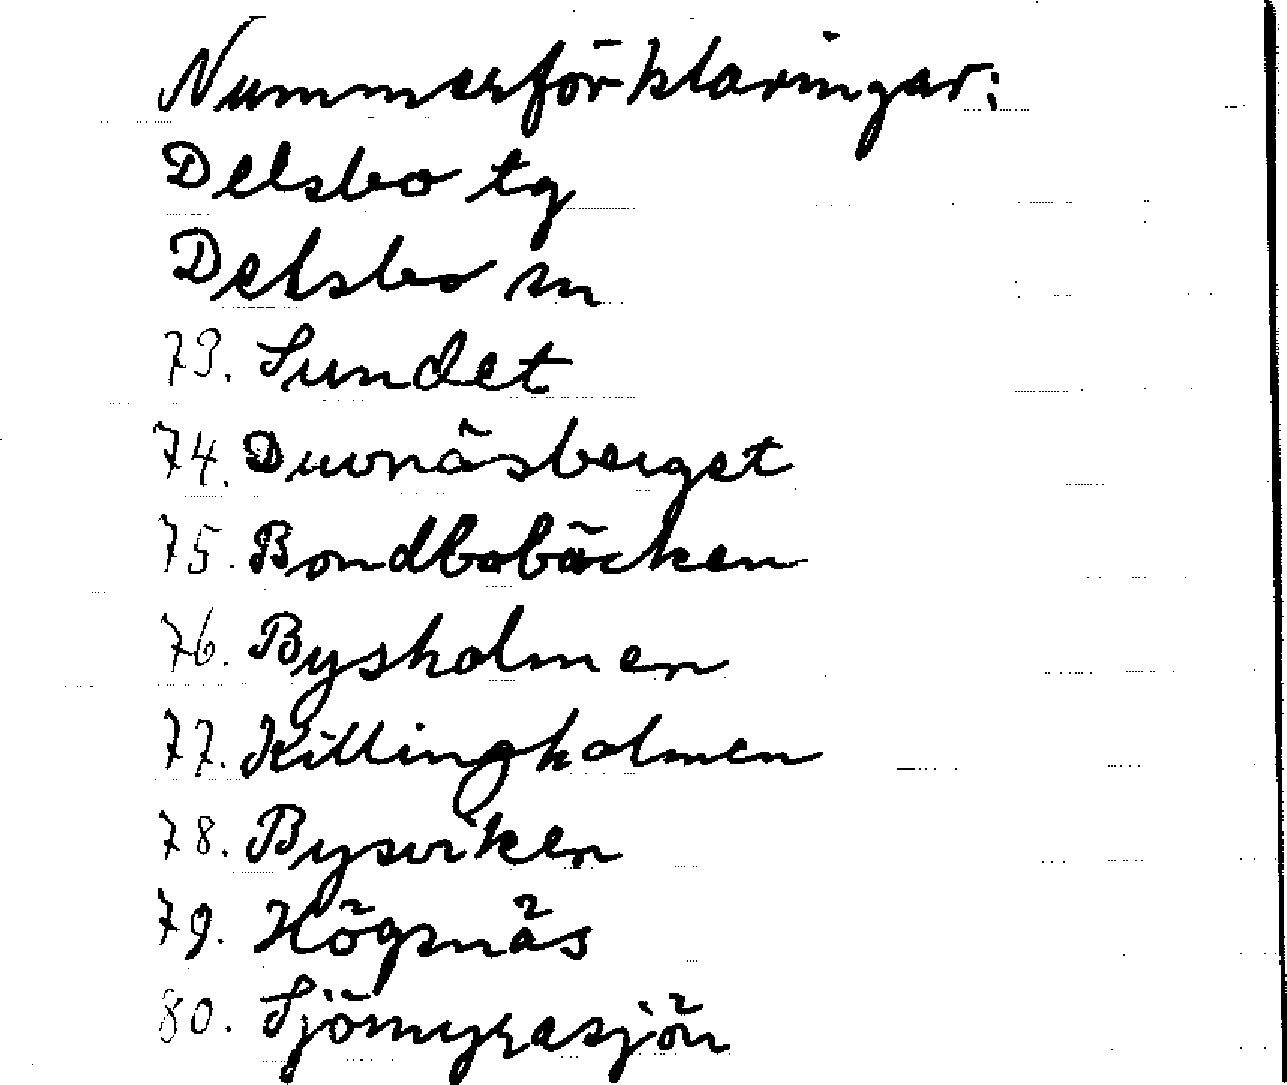 Nummerförklaringar:
Delsbo tg
Delsbo sn
73. Sundet
74. Duvnäsberget
75. Bondbobäcken
76. Bysholmen
77. Killingholmen
78. Bysviken
79. Högsnäs
80. Sjömyrasjön